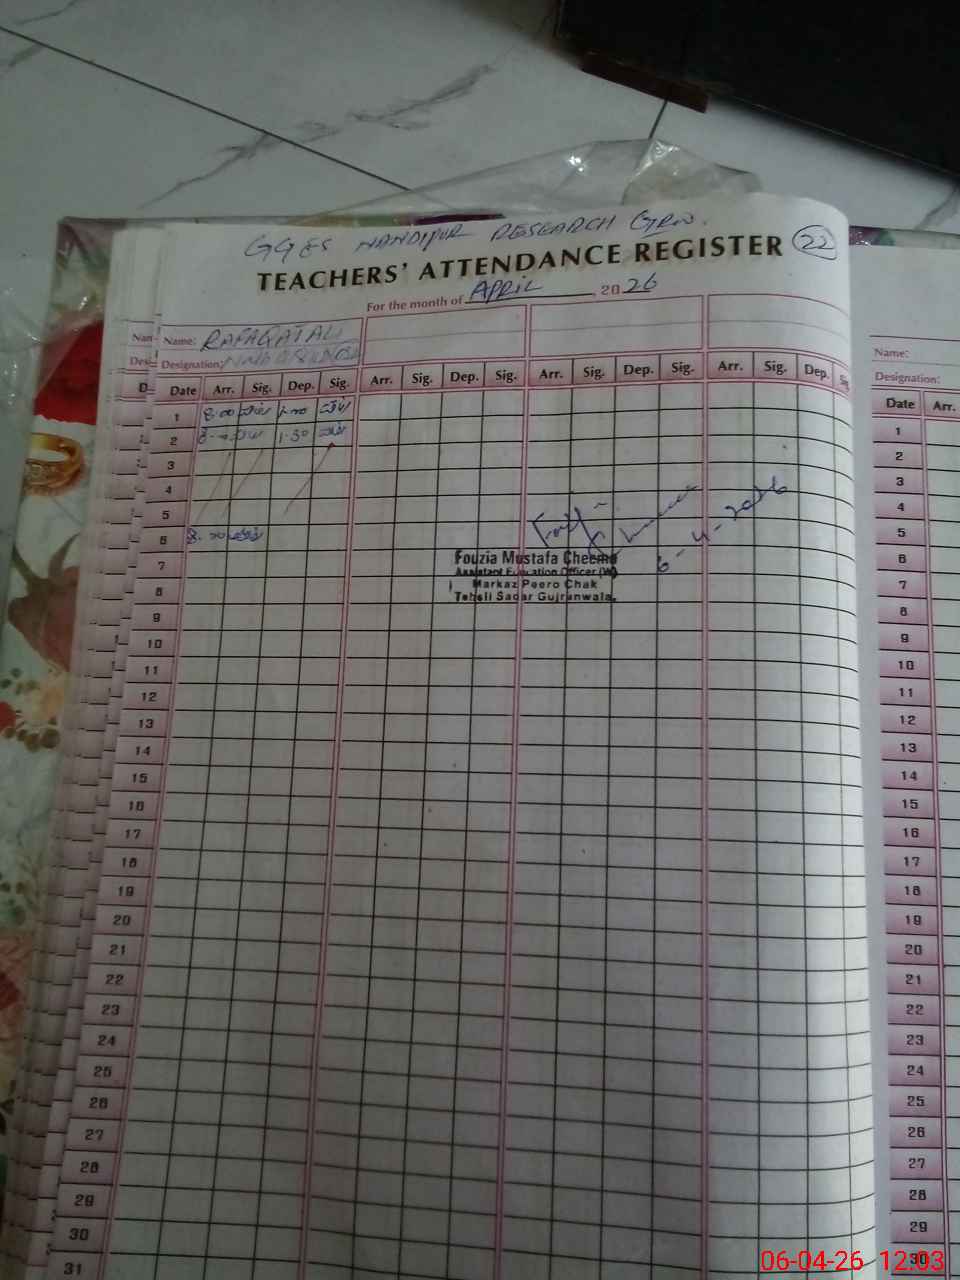 GGES NANDIPUR RESEARCH GRW.
TEACHERS' ATTENDANCE REGISTER 22
For the month of APRIL 2026
Name: RAFAQAT ALI
Designation:
Date Arr. Sig. Dep. Sig. Arr. Sig. Dep. Sig. Arr. Sig. Dep. Sig. Arr. Sig. Dep. Sig.
1 8:00
2 1:30
3
4
5
6
7
8
9
10
11
12
13
14
15
16
17
18
19
20
21
22
23
24
25
26
27
28
29
30
31
6-4-2026
Fouzia Mustafa Cheema
Assistant Education Officer (W)
Markaz Peero Chak
Tehsil Sadar Gujranwala.
Name:
Designation:
Date Arr.
1
2
3
4
5
6
7
8
9
10
11
12
13
14
15
16
17
18
19
20
21
22
23
24
25
26
27
28
29
30
06-04-26 12:03